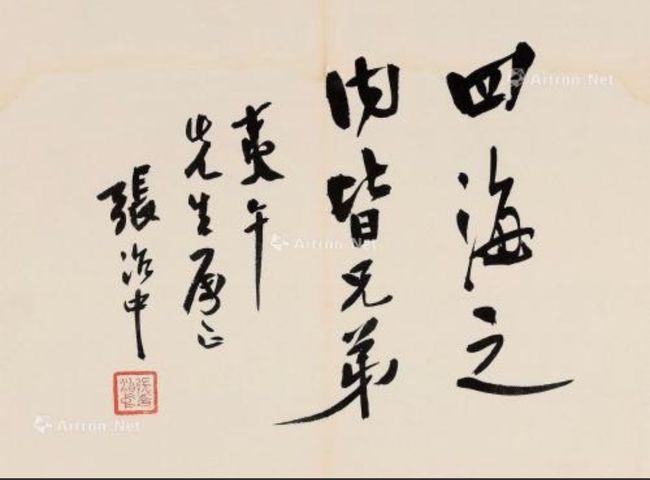 四海之
内皆兄弟
夷午
先生属正
張治中
張治中
Artron.Net
Artron.Net
Artron.Net